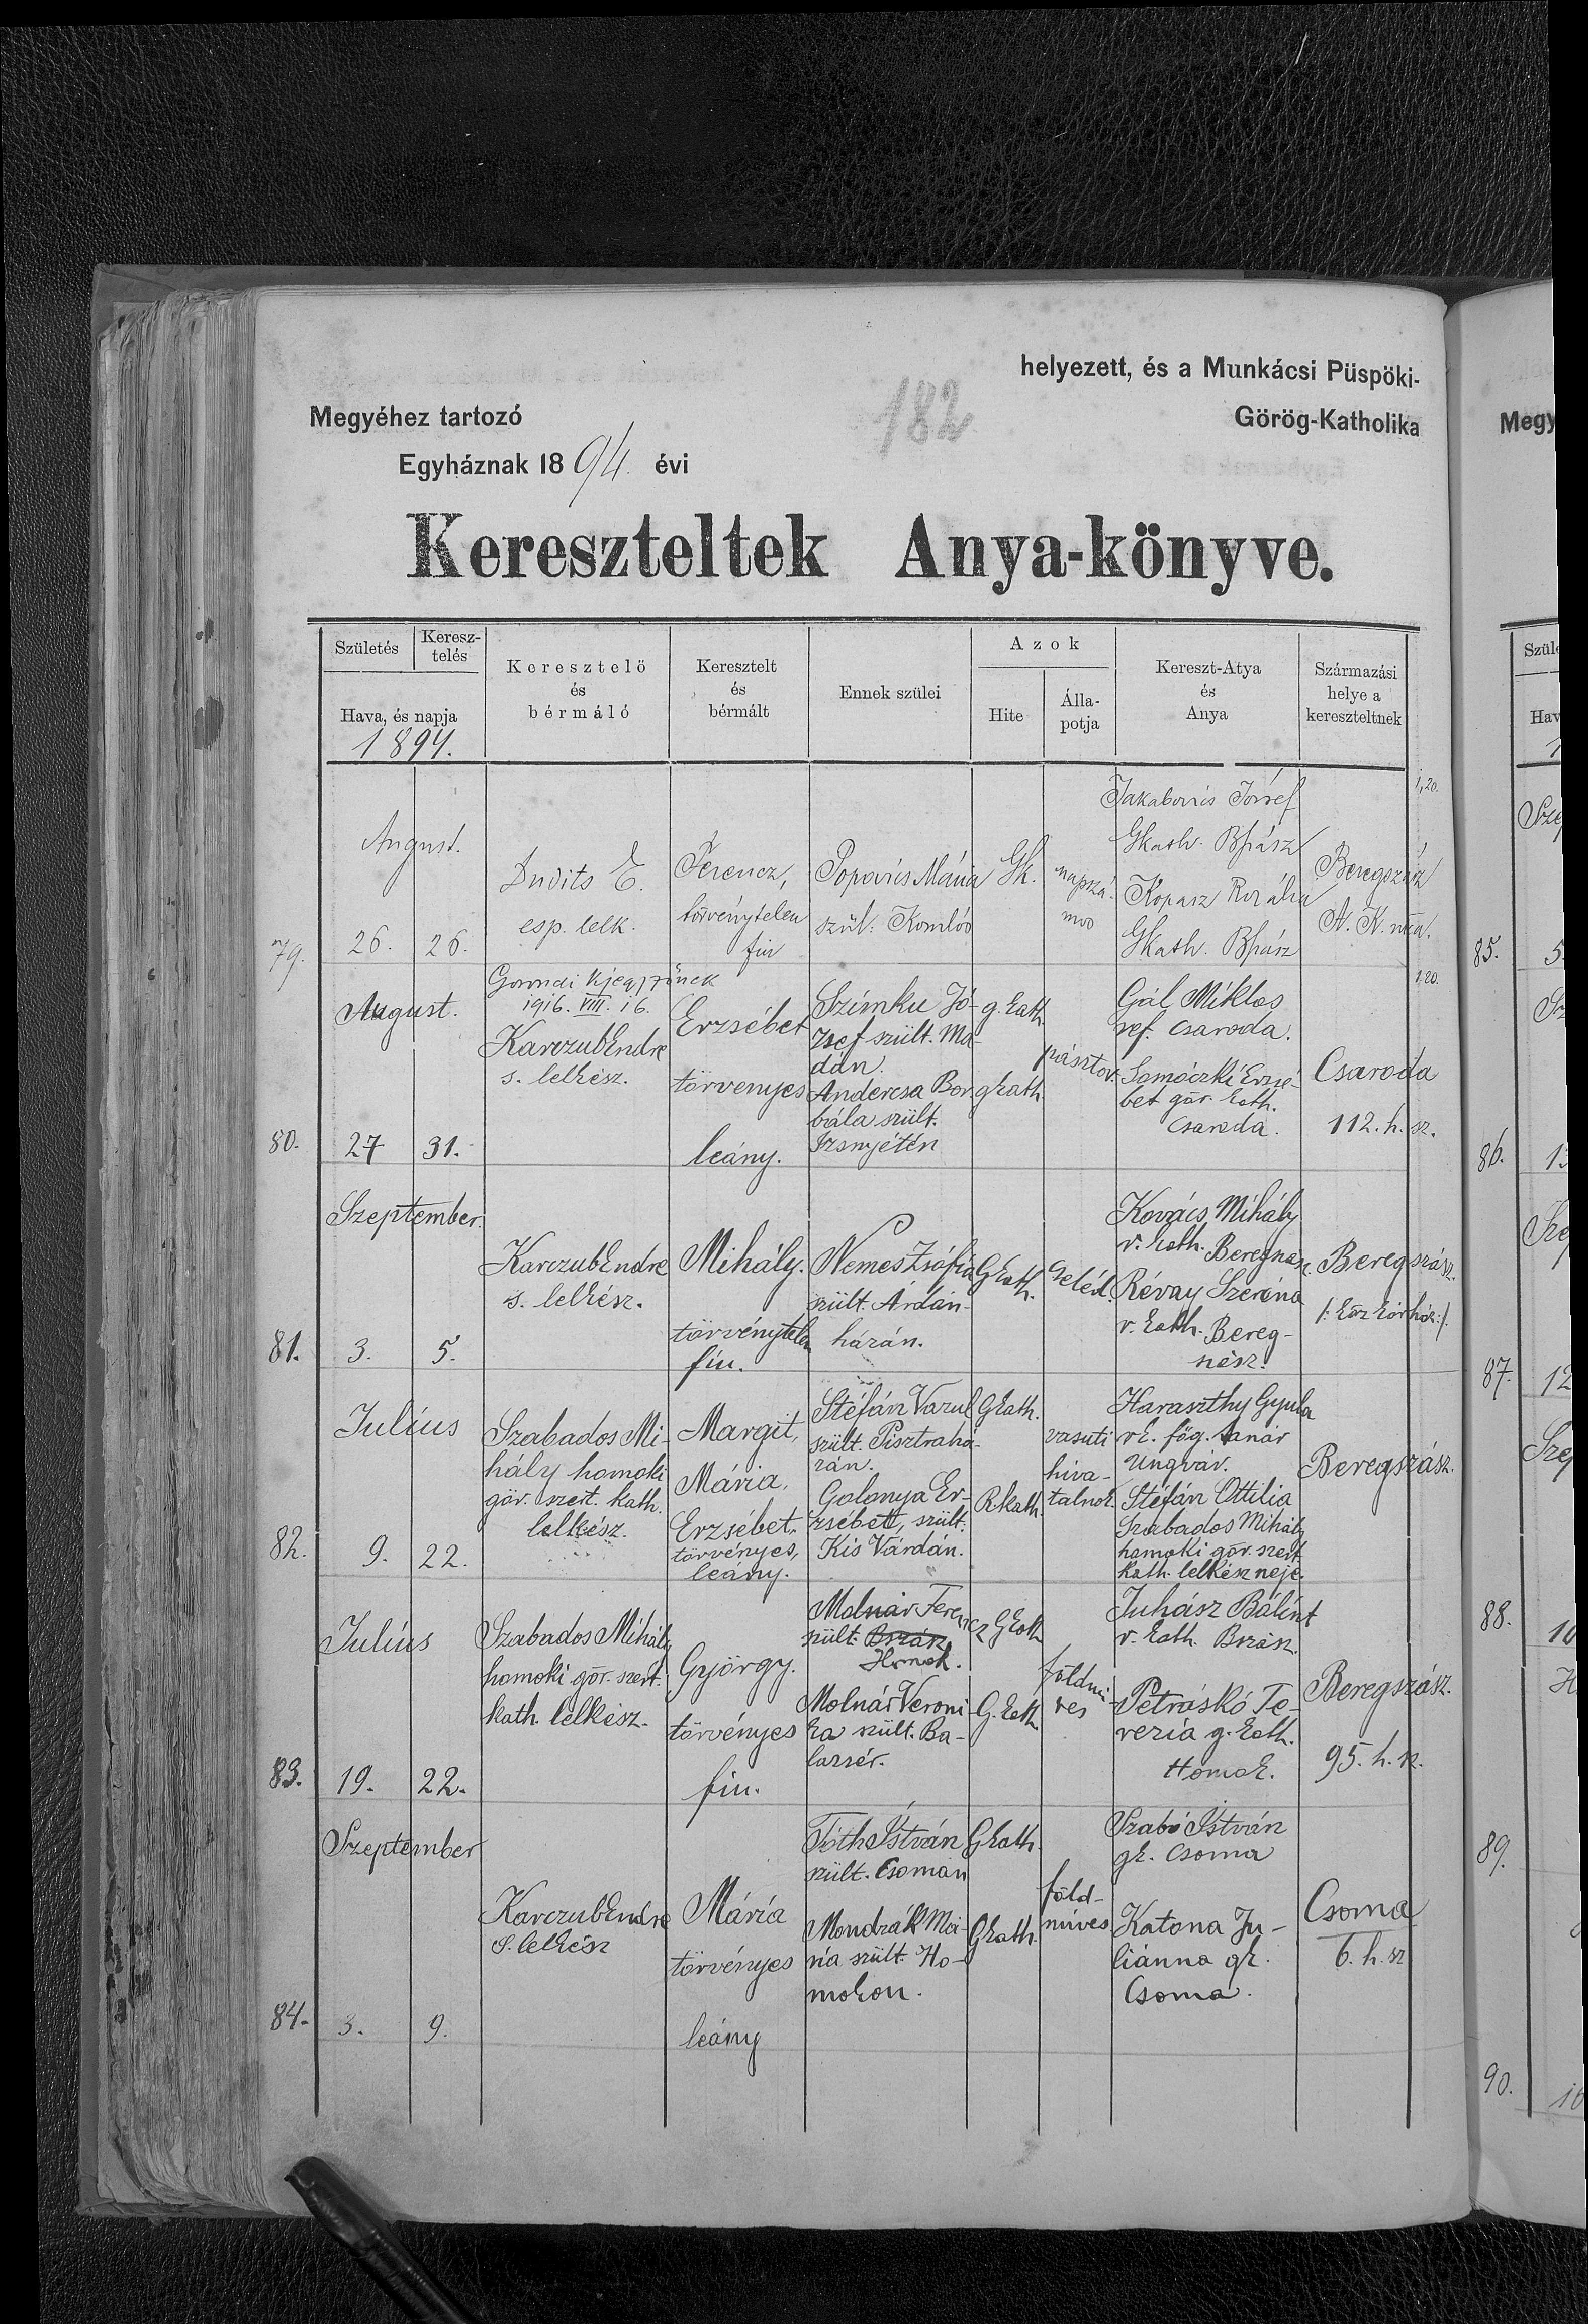 helyezett, és a Munkácsi Püspöki-
Megyéhez tartozó 182 Görög-Katholika
Egyháznak 1894. évi
Kereszteltek Anya-könyve.
Születés
Keresz-
telés
Hava, és napja
1894.
Keresztelő
és
bérmáló
Keresztelt
és
bérmált
Ennek szülei
Azok
Hite
Álla-
potja
Kereszt-Atya
és
Anya
Származási
helye a
kereszteltnek
79.
August.
26. 26.
Dudits E.
esp. lelk.
Ferencz,
törvénytelen
fiú
Popovics Mária
szül. Komlós
Gk.
napszá-
mos
Jakabovics József
Gkath. Bhász
Kopasz Rozália
Gkath. Bhász
Beregszász
1,20.
80.
August.
27 31.
1916. VIII. 16.
Karczub Endre
s. lelkész.
Erzsébet
törvenyes
leány.
Szimku Jó-
zsef szült. Ma-
dán.
Andercsa Bor
bála szült.
Izsnyétén
g. kath.
gkath
pásztor.
Gál Miklos
ref. Csaroda.
Samóczki Erzsé-
bet gör. kath.
Csaroda.
Csaroda
112. h. sz.
1,20.
81.
Szeptember.
3. 5.
Karczub Endre
s. lelkész.
Mihály.
törvénytelen
fiu.
Nemes Zsófia
szült. Árdán-
házán.
Gkath.
cseléd.
Kovács Mihály
r. kath. Beregszász.
Révay Szeréna
r. kath. Bereg-
szász.
Beregszász.
/: köz kórház :/.
82.
Július
9. 22.
Szabados Mi-
hály homoki
gör. szert. kath.
lelkész.
Margit,
Mária,
Erzsébet,
törvényes,
leány.
Stéfán Vazul
szült. Pisztrahá-
zán.
Golonya Er-
zsébet, szült.
Kis Várdán.
Gkath.
Rkath.
vasuti
hiva-
talnok
Haraszthy Gyula
rk. főg. tanár
Ungvár.
Stéfán Ottilia
Szabados Mihály
homoki gör. szert.
kath. lelkész neje.
Beregszász.
83.
Július
19. 22.
Szabados Mihály
homoki gör. szert.
kath. lelkész.
György.
törvényes
fiu.
Molnár Ferencz
szült. Bszász
Homok.
Molnár Veroni-
ka szült. Ba-
lazsér.
Gkath
G. kath
földmi-
ves
Juhász Bálint
r. kath. Bszász.
Petráskó Te-
rezía g. kath.
Homok.
Beregszász.
95. h. sz.
84.
Szeptember
3. 9.
Karczub Endre
s. lelkész
Mária
törvényes
leány
Tóth István
szült. Csomán
Mondrák Má-
ria szült. Ho-
mokon.
Gkath.
Gkath.
föld-
míves
Szabó István
gk. Csoma
Katona Ju-
liánna gk.
Csoma.
Csoma
6. h. sz
85.
86.
87.
88.
89.
90.